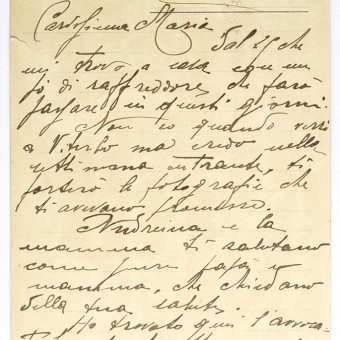 Carissima Maria
Dal 25 che
mi trovo a casa con un
pò di raffreddore che farò
passare in questi giorni.
Non so quando verrò
a Viterbo ma credo nella
settimana entrante, ti
porterò le fotografie che
ti avevano promesso.
e la
mamma ti salutano
come pure papà e
mamma, che chiedono
della tua salute.
Ho trovato qui l'avvoca-